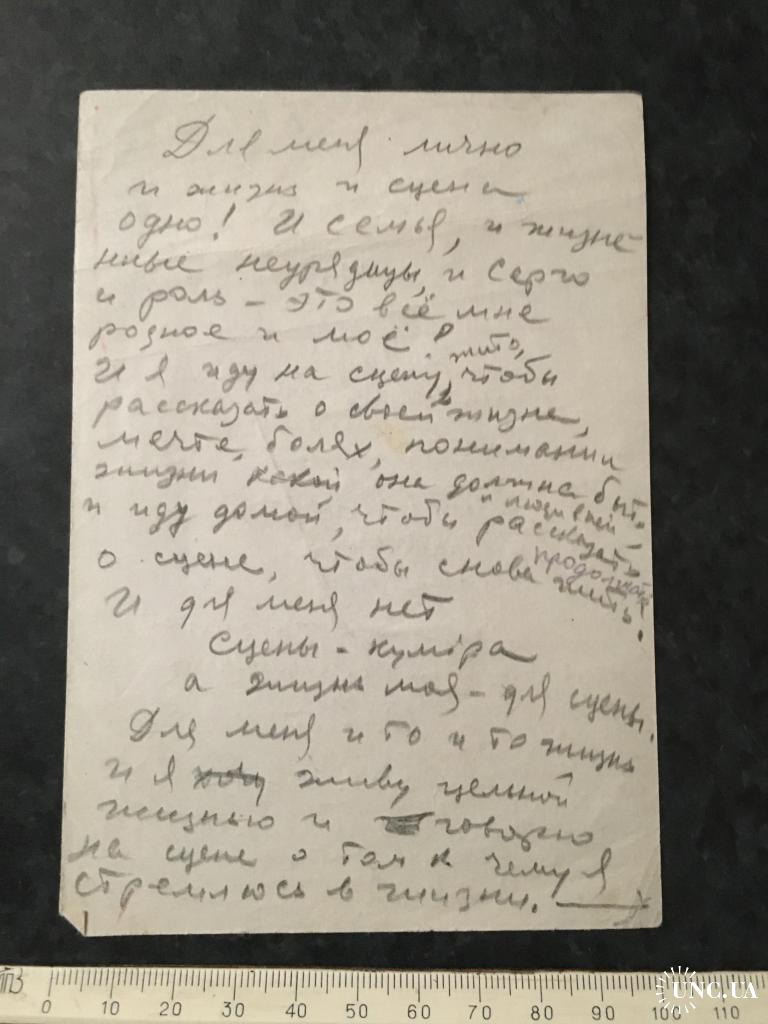 Для меня лично
и жизнь и сцена
одно! И семья, и жизне
нные неурядицы, и Серго
и роль - это всё мне
родное и моё!
И я иду на сцену жить, чтобы
рассказать о своей жизне,
мечте, болях, понимании
жизни какой она должна быть
и люди в ней -
и иду домой, чтобы рассказать
о сцене, чтобы снова продолжать жить.
И для меня нет
Сцены - куміра
а жизнь моя - для сцены.
Для меня и то и то жизнь
И я хочу живу цельной
жизнью и говорю
на сцене о том к чему я
стремлюсь в жизни.
0 10 20 30 40 50 60 70 80 90 100 110
UNC.UA